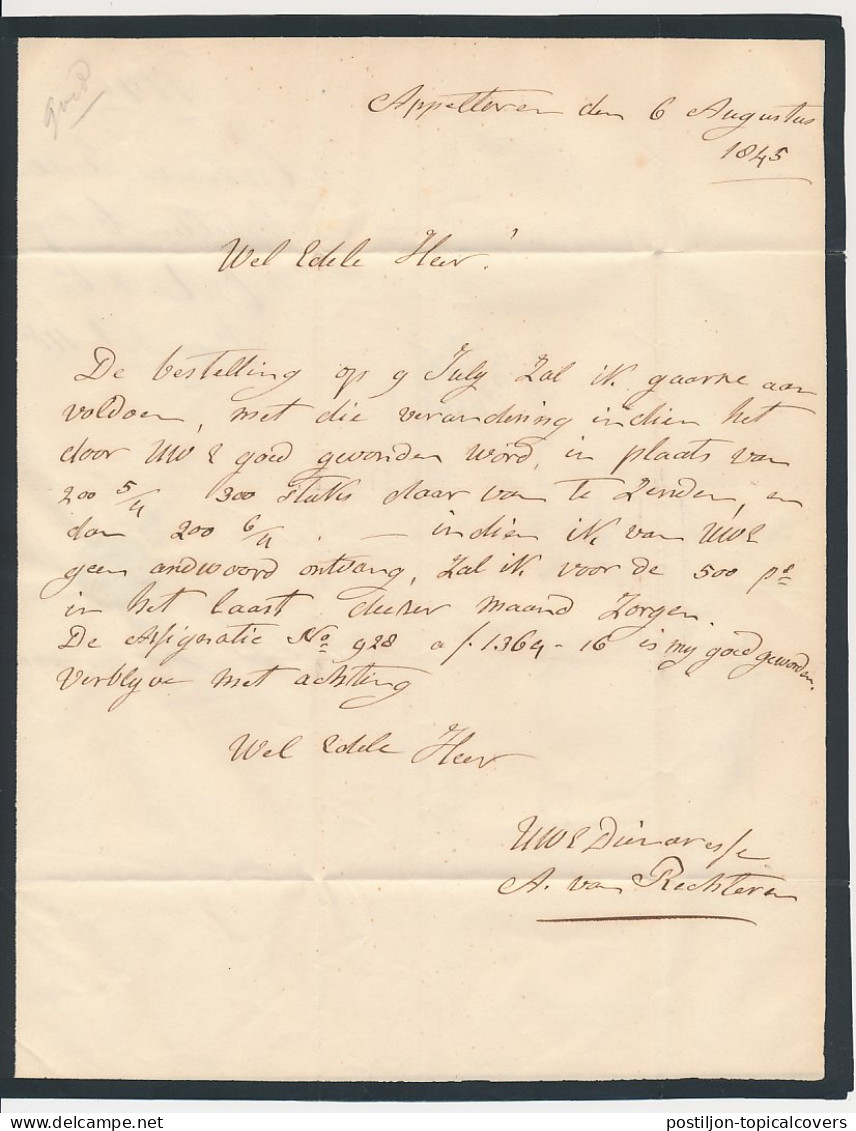 goed
Appeltern den 6 Augustus
1845
Wel Edele Heer!
De bestelling op 9 July Zal ik gaarne aan
voldoen, met die verandering indien het
door UWE goed gevonden word, in plaats van
200 5/4 300 stuks daar van te Zenden, en
dan 200 6/4. — indien ik van UWE
geen andwoord ontvang, Zal ik voor de 500 ps
in het laast deeser maand Zorgen.
De Assignatie No 928 a f 1364-16 is my goed geworden.
Verblyve met achting
Wel Edele Heer
UWE Dienaresse
A. van Rechteren
postiljon-topicalcovers